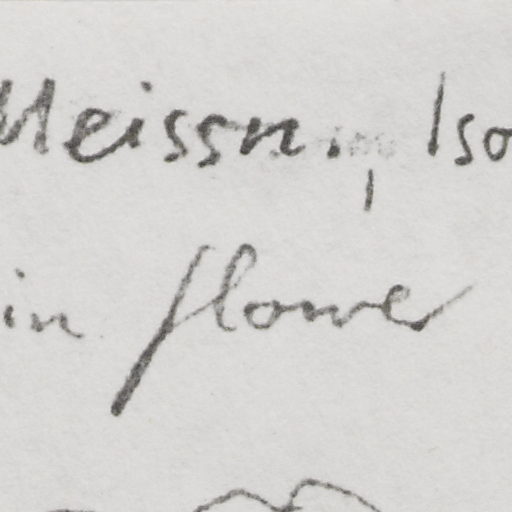 Meissn., Iso
in flower